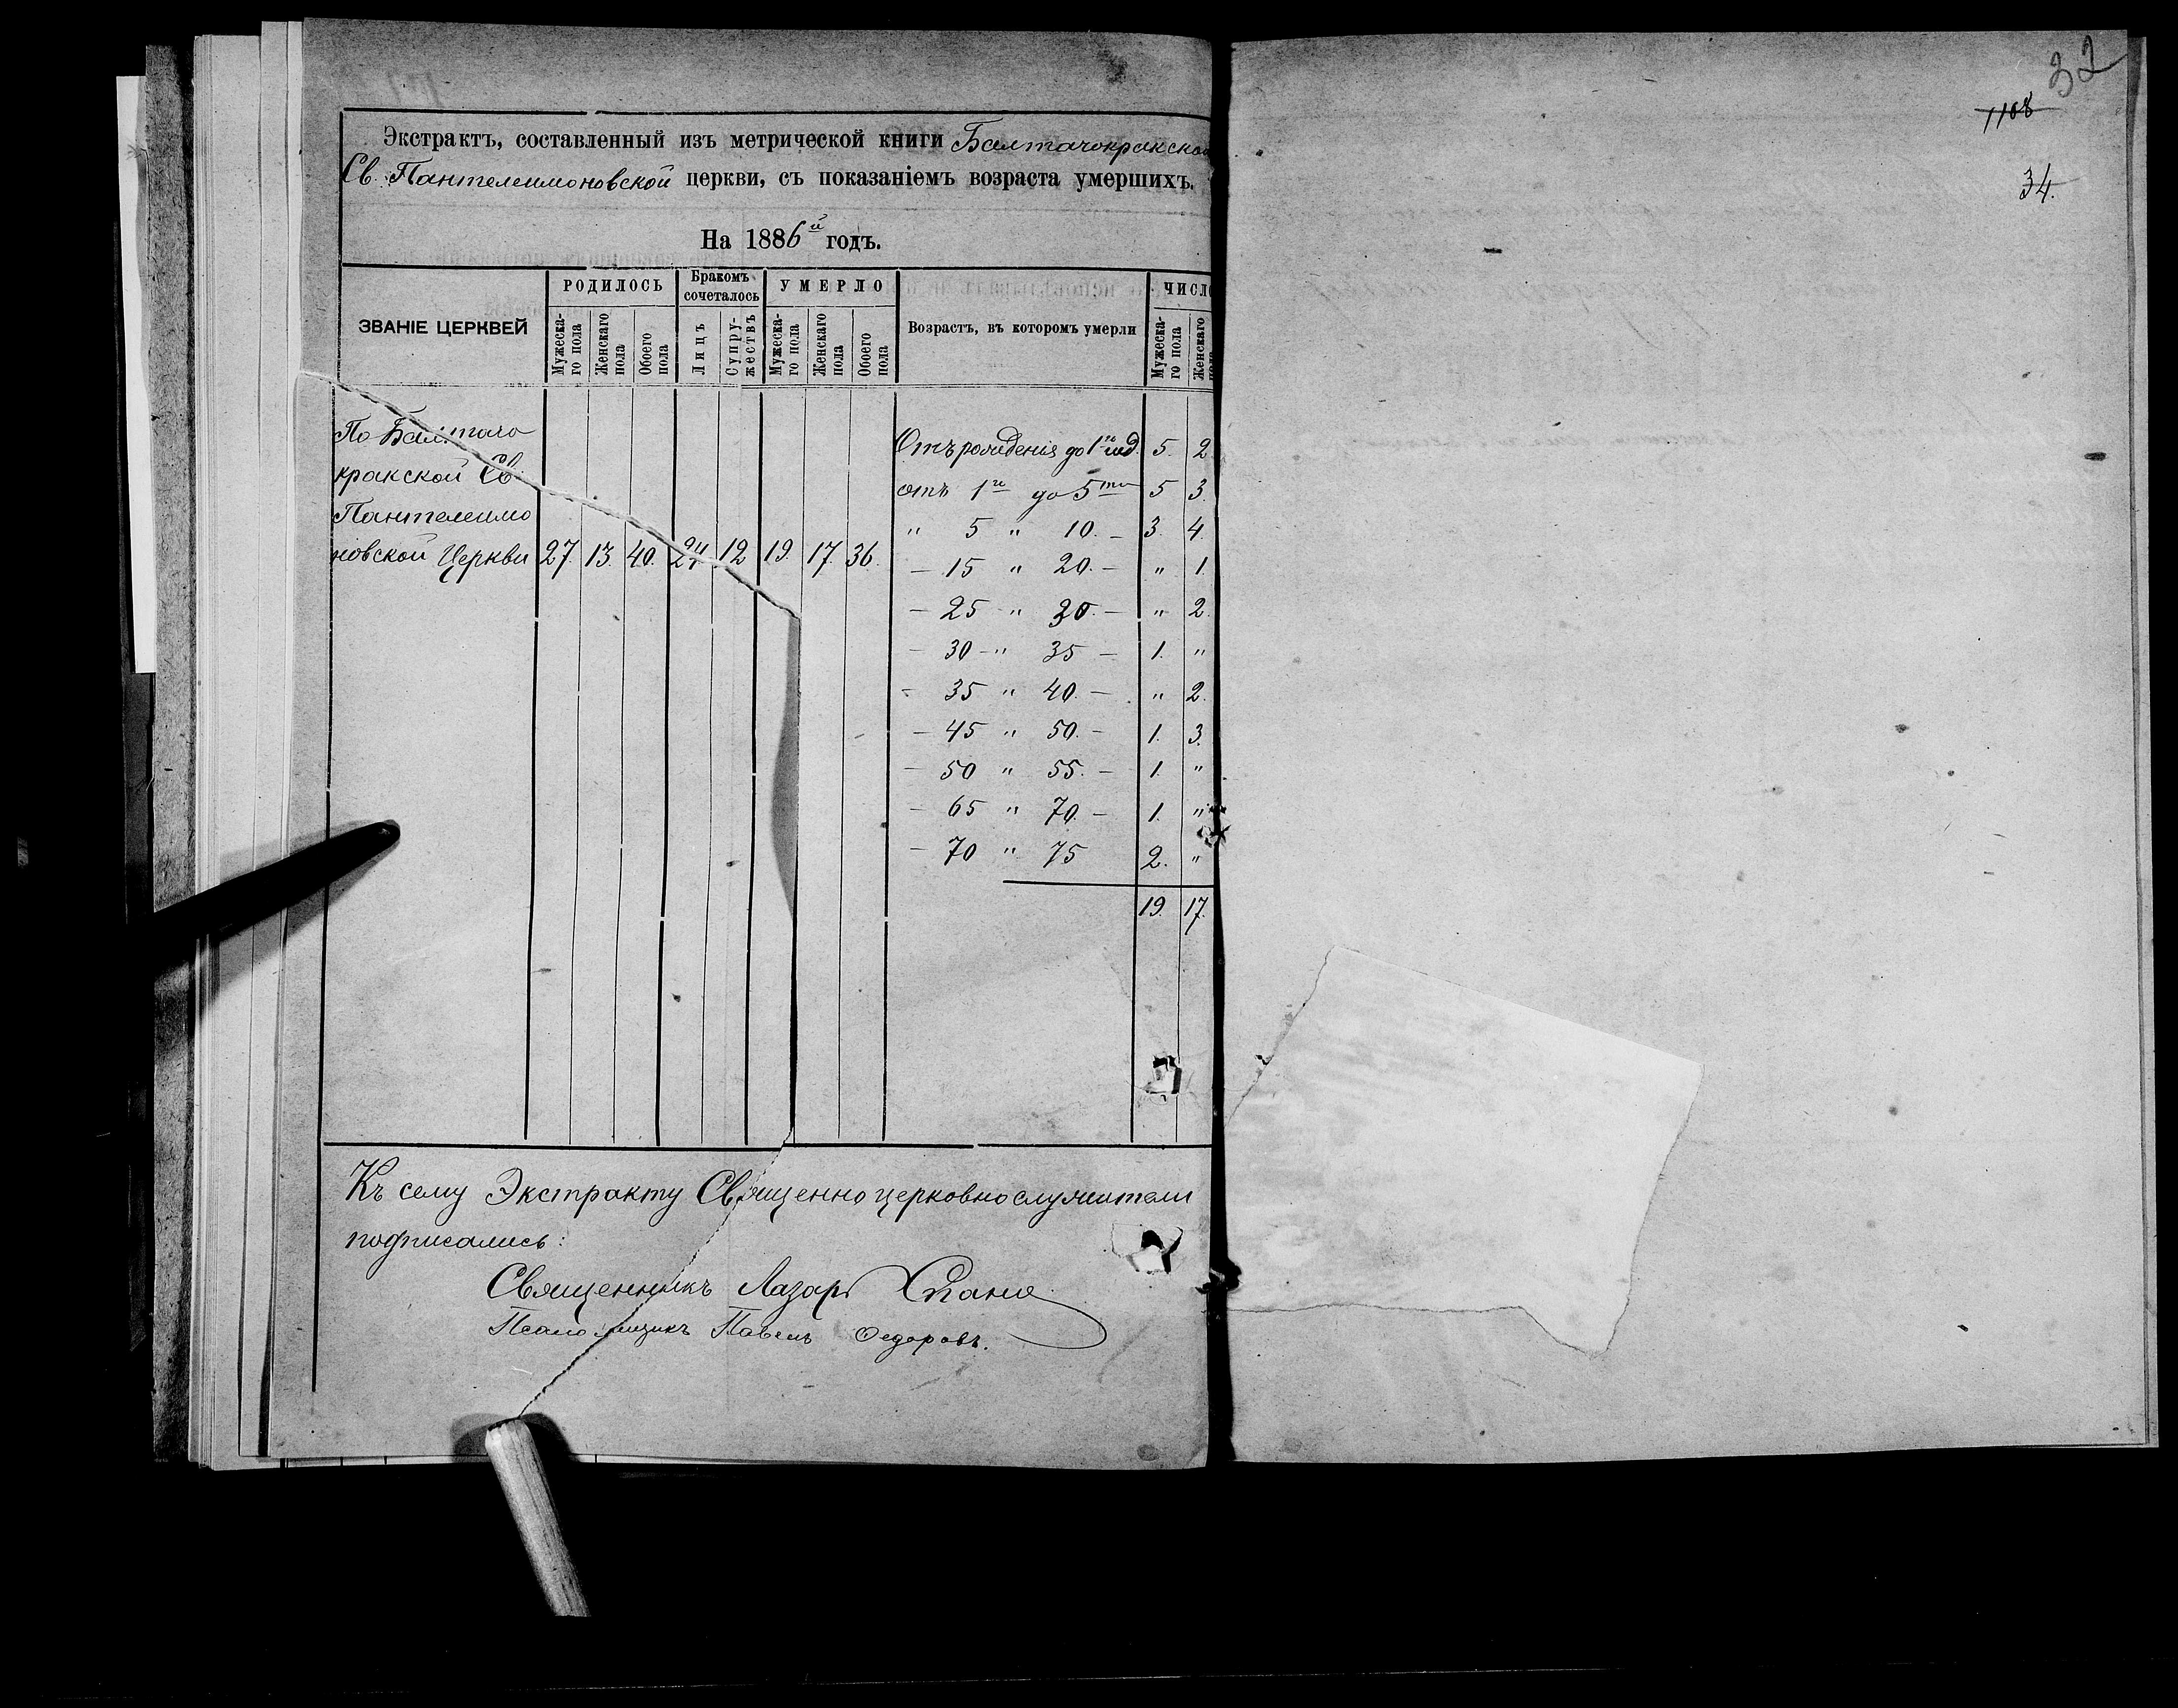 Экстрактъ, составленный изъ метрической книги Балтачокракской
Св. Пантелеимоновской церкви, съ показаніемъ возраста умершихъ.
На 1886й годъ.
ЗВАНІЕ ЦЕРКВЕЙ
РОДИЛОСЬ
Мужеска-
го пола
Женскаго
пола
Обоего
пола
Бракомъ
сочеталось
Лицъ
Супру-
жествъ
УМЕРЛО
Мужеска-
го пола
Женскаго
пола
Обоего
пола
Возрастъ, въ которомъ умерли
ЧИСЛО
Мужеска-
го пола
Женскаго
пола
По Балтачо
кракской Св.
Пантелеимо
новской Церкви 27. 13. 40. 24. 12 19. 17. 36.
Отъ рожденія до 1го 5. 2
отъ 1го до 5ти 5 3.
" 5 " 10. - 3. 4.
- 15 " 20. - " 1.
- 25 " 30. - " 2.
- 30 - " 35 - 1. "
- 35 " 40. - " 2.
- 45 " 50. - 1. 3.
- 50 " 55. - 1. "
- 65 " 70. - 1. "
- 70 " 75 2. "
19. 17.
Къ сему Экстракту Священно церковнослужители
подписались:
Священникъ Лазарь
Псаломщикъ Павелъ Федоровъ.
32
1108
34.